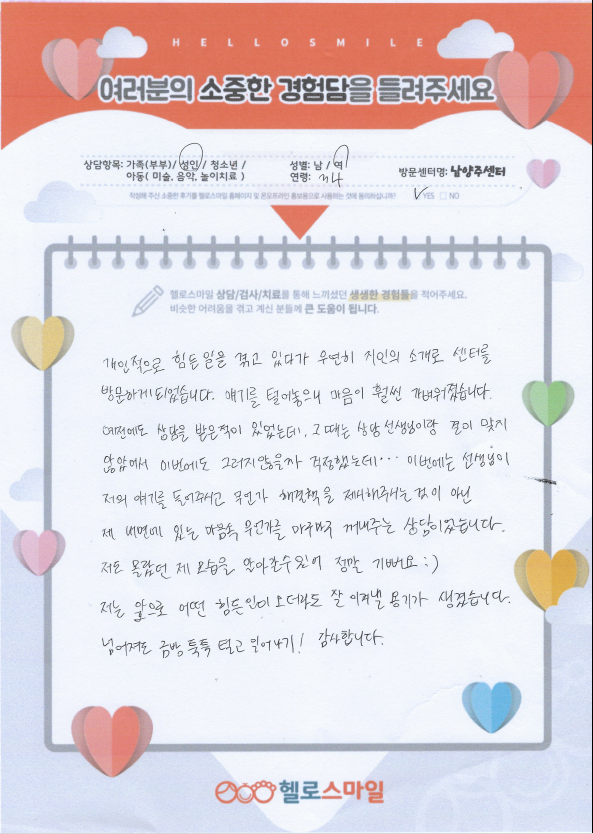 HELLOSMILE
여러분의 소중한 경험담을 들려주세요
상담항목: 가족(부부)/ 성인 / 청소년 /
아동( 미술, 음악, 놀이치료 )
성별: 남 / 여
연령: 24
방문센터명: 남양주센터
작성해 주신 소중한 후기를 헬로스마일 홈페이지 및 온오프라인 홍보용으로 사용하는 것에 동의하십니까? YES □ NO
헬로스마일 상담/검사/치료를 통해 느끼셨던 생생한 경험들을 적어주세요.
비슷한 어려움을 겪고 계신 분들께 큰 도움이 됩니다.
개인적으로 힘든일을 겪고 있다가 우연히 지인의 소개로 센터를
방문하게되었습니다. 얘기를 털어놓으니 마음이 훨씬 가벼워졌습니다.
예전에도 상담을 받은적이 있었는데, 그때는 상담선생님이랑 결이 맞지
않았어서 이번에도 그러지않을까 걱정했는데… 이번에는 선생님이
저의 얘기를 들어주시고 무언가 해결책을 제시해주시는것이 아닌
제 내면에 있는 마음속 무언가를 마구마구 꺼내주는 상담이었습니다.
저도 몰랐던 제 모습을 알아갈수있어 정말 기뻐요 :)
저는 앞으로 어떤 힘든일이 오더라도 잘 이겨낼 용기가 생겼습니다.
넘어져도 금방 툭툭 털고 일어나기! 감사합니다.
헬로스마일